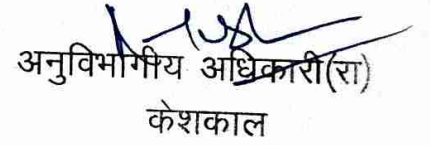 अनुविभागीय अधिकारी(रा)
केशकाल